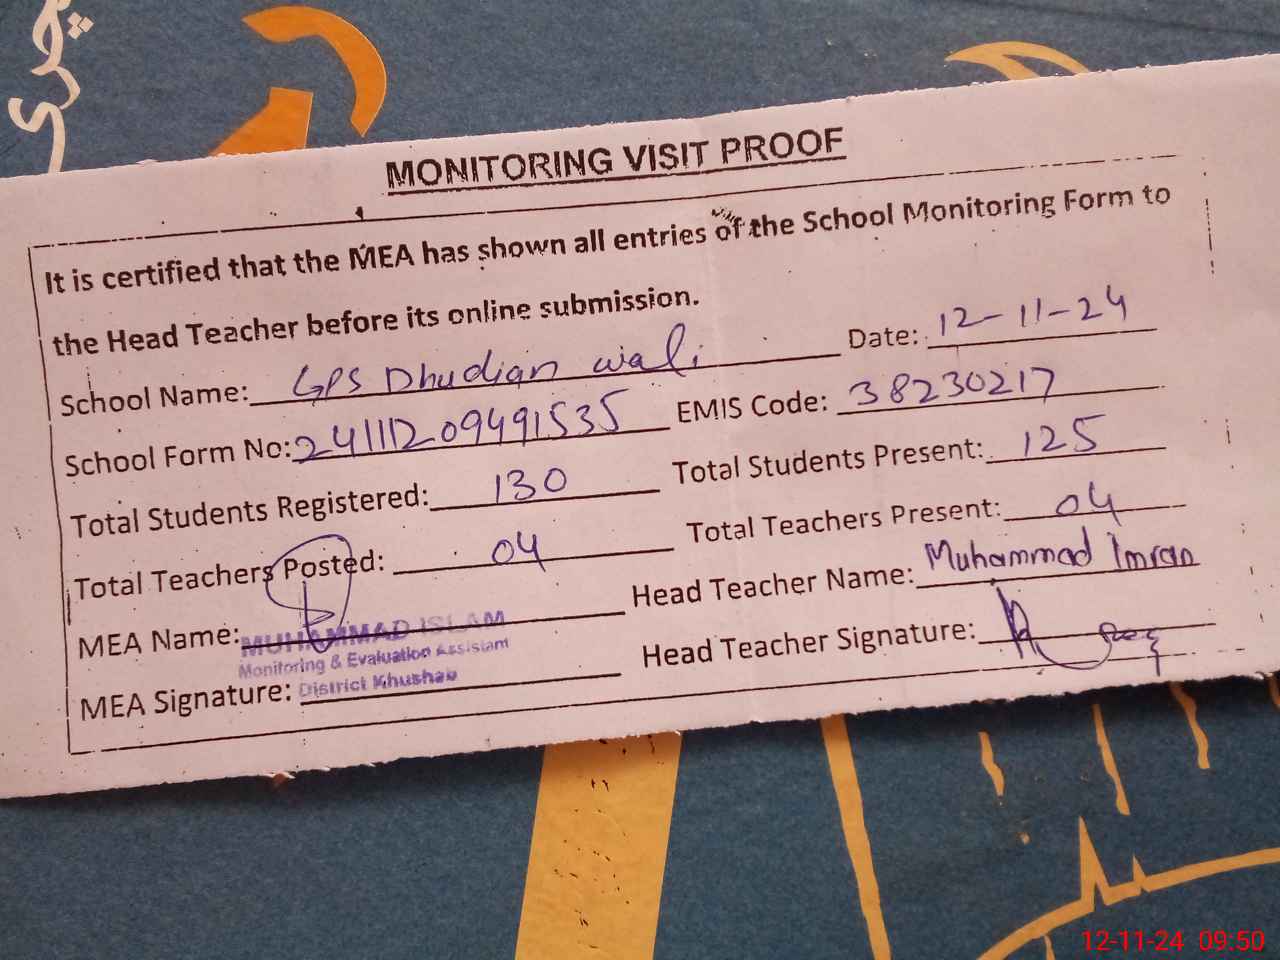 چری
MONITORING VISIT PROOF
It is certified that the MEA has shown all entries of the School Monitoring Form to
the Head Teacher before its online submission.
School Name: GPS Dhudian wali Date: 12-11-24
School Form No: 24111209491535 EMIS Code: 38230217
Total Students Registered: 130 Total Students Present: 125
Total Teachers Posted: 04 Total Teachers Present: 04
MEA Name: MUHAMMAD ISLAM Head Teacher Name: Muhammad Imran
Monitoring & Evaluation Assistant
MEA Signature: District Khushab Head Teacher Signature:
12-11-24 09:50